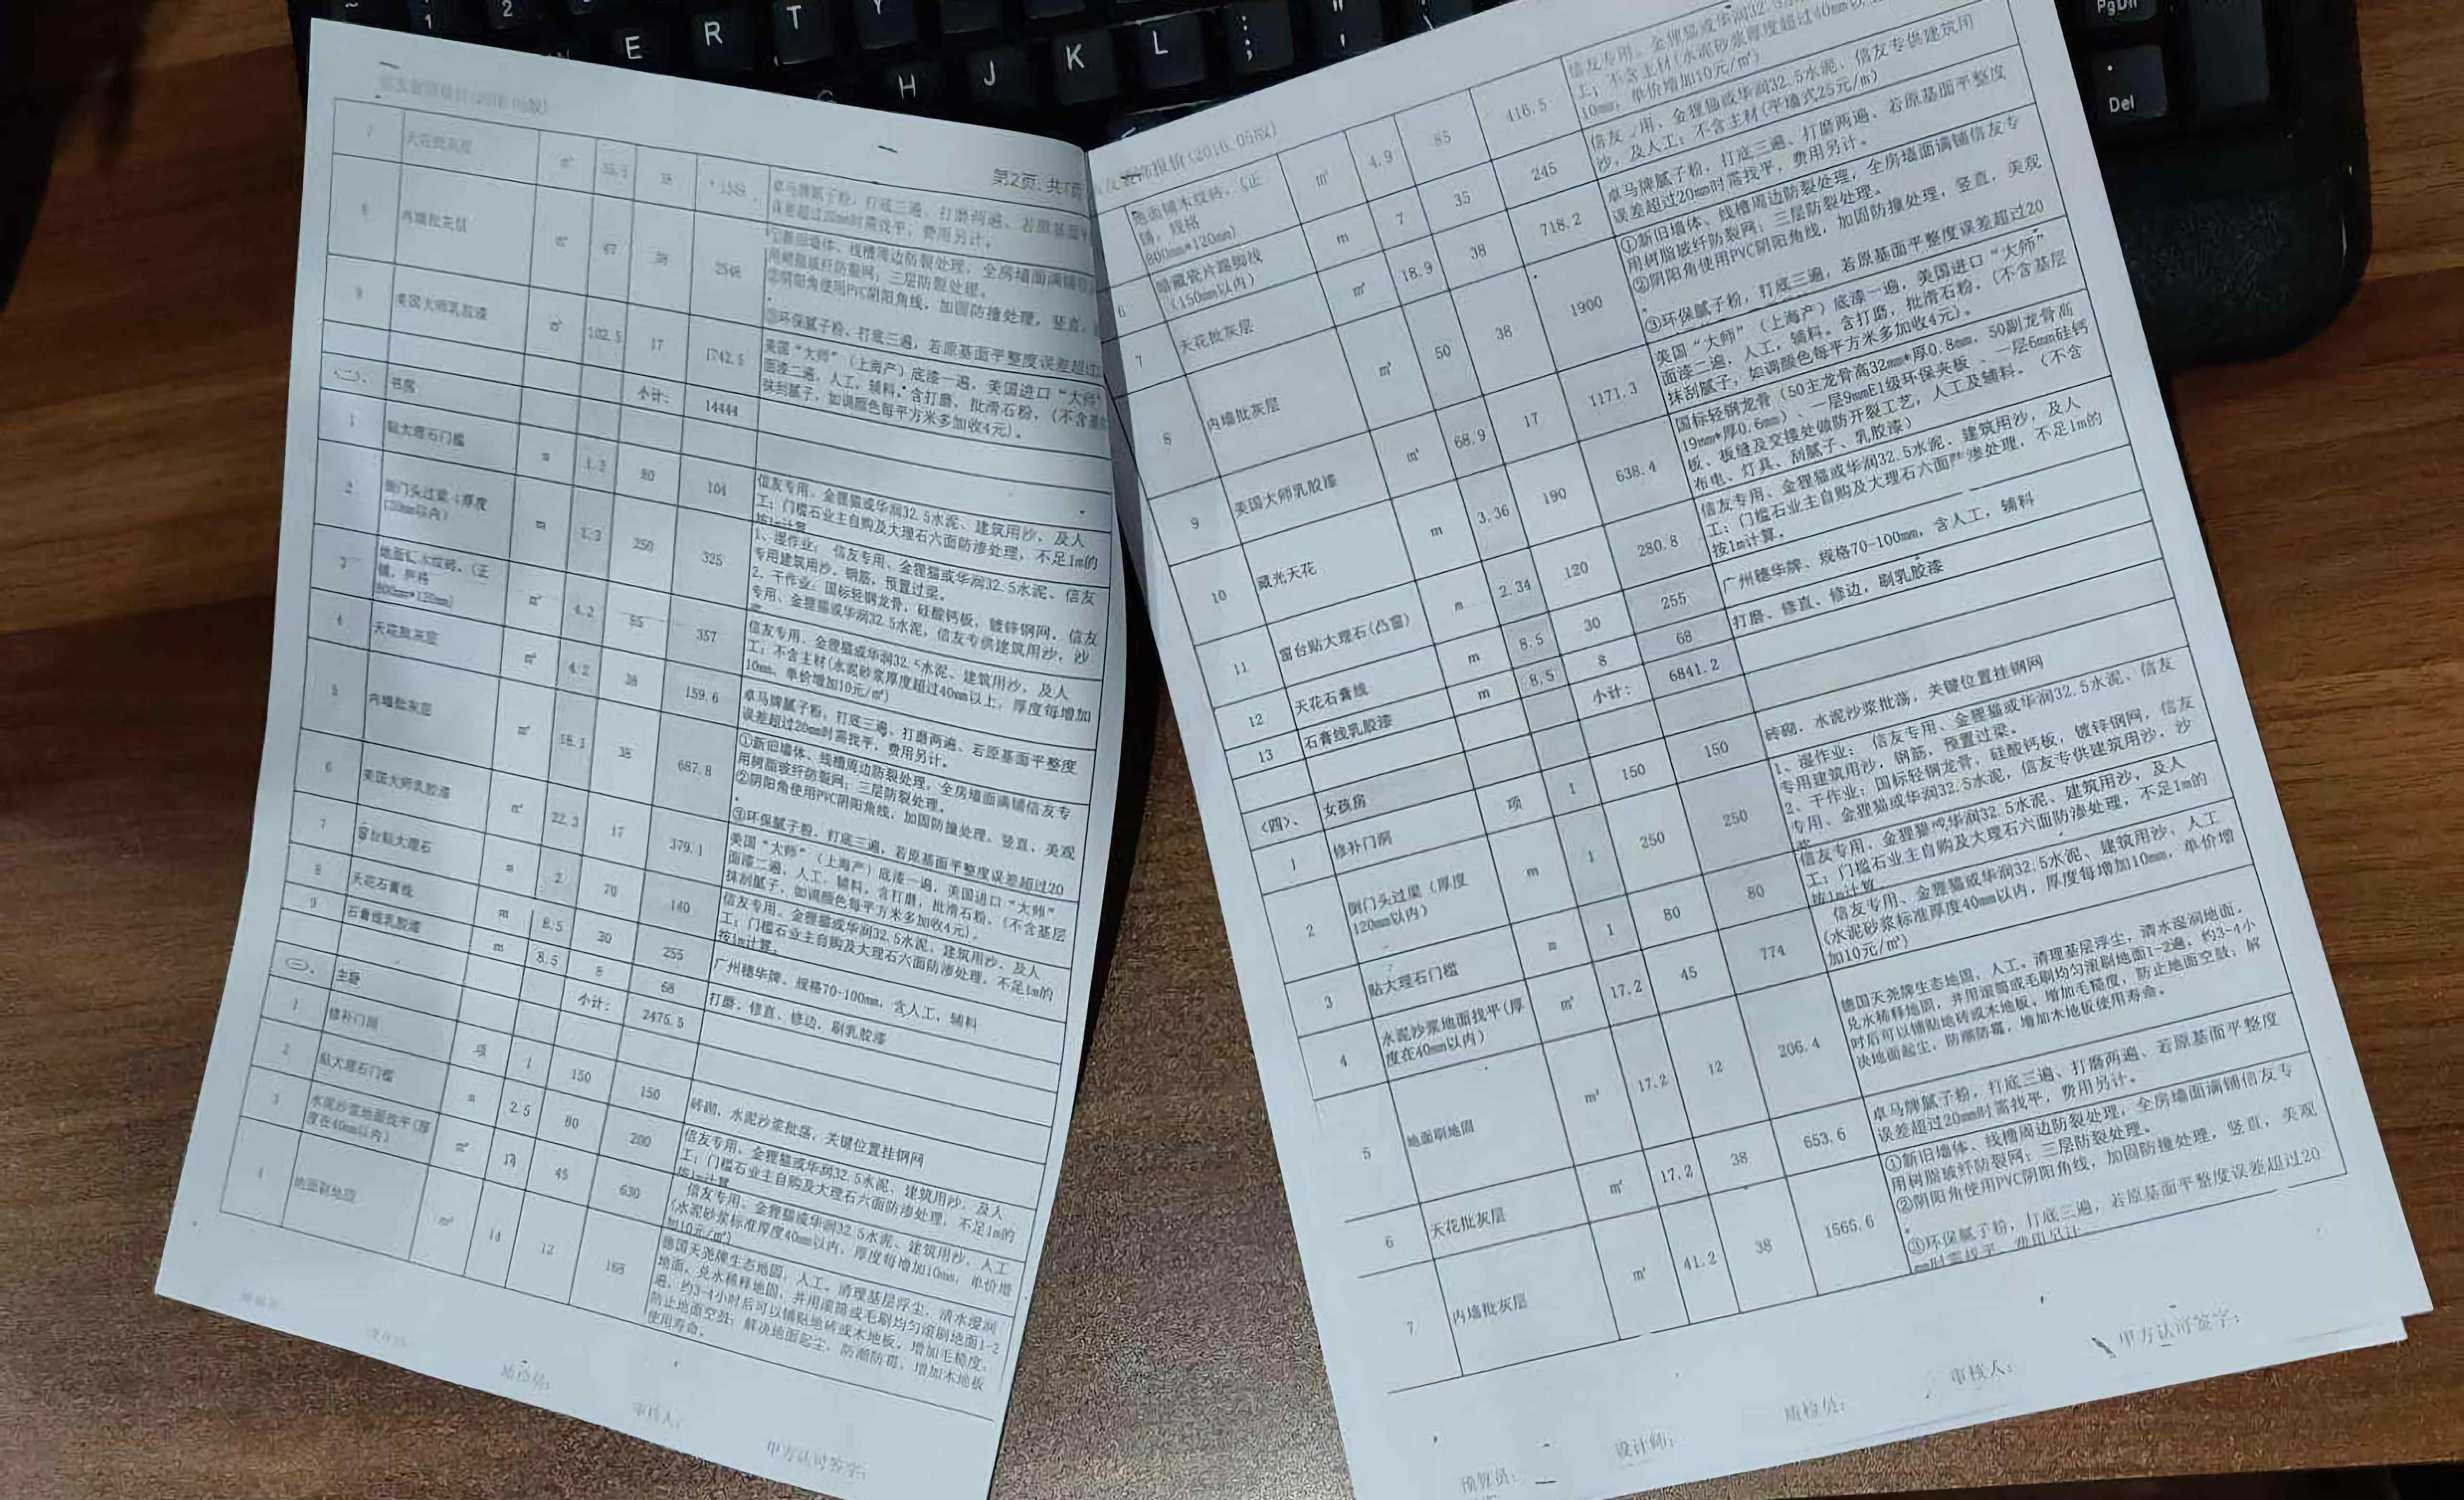 第2页, 共7页
7 天花批灰层 ㎡ 38
卓马牌腻子粉, 打底三遍、打磨两遍、若原基面平
误差超过20mm时需找平, 费用另计。
8 内墙批灰层 ㎡ 67 38 2546
①新旧墙体、线槽周边防裂处理, 全房墙面满铺
用树脂玻纤防裂网; 三层防裂处理。
②阴阳角使用PVC阴阳角线, 加固防撞处理, 竖直,
③环保腻子粉、打底三遍, 若原基面平整度误差超过
9 美国大师乳胶漆 ㎡ 102.5 17 1742.5
美国“大师”(上海产)底漆一遍, 美国进口“大师”
面漆二遍, 人工, 辅料, 含打磨、批滑石粉, (不含基
抹刮腻子, 如调颜色每平方米多加收4元)。
小计: 14444
(二)、 书房
1 贴大理石门槛 m 1.3 80 104
信友专用、金狸猫或华润32.5水泥、建筑用沙, 及人
工; 门槛石业主自购及大理石六面防渗处理, 不足1m的
按1m计算
2 倒门头过梁(厚度
120mm以内) m 1.3 250 325
1、湿作业: 信友专用、金狸猫或华润32.5水泥、信友
专用建筑用沙, 钢筋, 预置过梁。
2、干作业: 国标轻钢龙骨, 硅酸钙板, 镀锌钢网, 信友
专用、金狸猫或华润32.5水泥, 信友专供建筑用沙, 沙
3 地面铺木纹砖、(正
铺, 规格
800mm*120mm) ㎡ 4.2 85 357
信友专用、金狸猫或华润32.5水泥、建筑用沙, 及人
工; 不含主材(水泥砂浆厚度超过40mm以上, 厚度每增加
10mm, 单价增加10元/㎡)
4 天花批灰层 ㎡ 4.2 38 159.6
卓马牌腻子粉, 打底三遍、打磨两遍、若原基面平整度
误差超过20mm时需找平, 费用另计。
5 内墙批灰层 ㎡ 18.1 38 687.8
①新旧墙体、线槽周边防裂处理, 全房墙面满铺信友专
用树脂玻纤防裂网; 三层防裂处理。
②阴阳角使用PVC阴阳角线, 加固防撞处理, 竖直, 美观
③环保腻子粉, 打底三遍, 若原基面平整度误差超过20
6 美国大师乳胶漆 ㎡ 22.3 17 379.1
美国“大师”(上海产)底漆一遍, 美国进口“大师”
面漆二遍, 人工, 辅料, 含打磨, 批滑石粉, (不含基层
抹刮腻子, 如调颜色每平方米多加收4元)。
7 窗台贴大理石 m 2 70 140
信友专用、金狸猫或华润32.5水泥、建筑用沙, 及人
工; 门槛石业主自购及大理石六面防渗处理, 不足1m的
按1m计算。
8 天花石膏线 m 8.5 30 255 广州穗华牌、规格70-100mm, 含人工, 辅料
9 石膏线乳胶漆 m 8.5 8 68 打磨、修直、修边, 刷乳胶漆
小计: 2475.5
(三)、 主卧
1 修补门洞 项 1 150 150 砖砌, 水泥沙浆批荡, 关键位置挂钢网
2 贴大理石门槛 m 2.5 80 200
信友专用、金狸猫或华润32.5水泥、建筑用沙, 及人
工; 门槛石业主自购及大理石六面防渗处理, 不足1m的
按1m计算
3 水泥沙浆地面找平(厚
度在40mm以内) ㎡ 14 45 630
信友专用、金狸猫或华润32.5水泥、建筑用沙、人工
(水泥砂浆标准厚度40mm以内, 厚度每增加10mm, 单价增
加10元/㎡)
4 地面刷地固 ㎡ 14 12 168
德国天尧牌生态地固, 人工, 清理基层浮尘, 清水湿润
地面, 兑水稀释地固, 并用滚筒或毛刷均匀滚刷地面1-2
遍, 约3-4小时后可以铺贴地砖或木地板, 增加毛糙度,
防止地面空鼓; 解决地面起尘, 防潮防霉, 增加木地板
使用寿命。
质检员:
审核人:
甲方认可签字:
友装饰报价(2018.05版)
地面铺木纹砖、(正
铺, 规格
800mm*120mm) ㎡ 4.9 85 416.5
信友专用、金狸猫或华润32.5水
工; 不含主材(水泥砂浆厚度超过40mm以
10mm, 单价增加10元/㎡)
6 暗藏瓷片踢脚线
(150mm以内) m 7 35 245
信友专用、金狸猫或华润32.5水泥、信友专供建筑用
沙, 及人工; 不含主材(平墙式25元/m)
7 天花批灰层 ㎡ 18.9 38 718.2
卓马牌腻子粉, 打底三遍、打磨两遍、若原基面平整度
误差超过20mm时需找平, 费用另计。
8 内墙批灰层 ㎡ 50 38 1900
①新旧墙体、线槽周边防裂处理, 全房墙面满铺信友专
用树脂玻纤防裂网; 三层防裂处理。
②阴阳角使用PVC阴阳角线, 加固防撞处理, 竖直, 美观
③环保腻子粉, 打底三遍, 若原基面平整度误差超过20
9 美国大师乳胶漆 ㎡ 68.9 17 1171.3
美国“大师”(上海产)底漆一遍, 美国进口“大师”
面漆二遍, 人工, 辅料, 含打磨, 批滑石粉, (不含基层
抹刮腻子, 如调颜色每平方米多加收4元)。
10 藏光天花 m 3.36 190 638.4
国标轻钢龙骨(50主龙骨高32mm*厚0.8mm, 50副龙骨高
19mm*厚0.6mm)、一层9mmE1级环保夹板、一层6mm硅钙
板、板缝及交接处做防开裂工艺, 人工及辅料。(不含
布电、灯具、刮腻子、乳胶漆)
11 窗台贴大理石(凸窗) m 2.34 120 280.8
信友专用、金狸猫或华润32.5水泥、建筑用沙, 及人
工; 门槛石业主自购及大理石六面防渗处理, 不足1m的
按1m计算。
12 天花石膏线 m 8.5 30 255 广州穗华牌、规格70-100mm, 含人工, 辅料
13 石膏线乳胶漆 m 8.5 8 68 打磨、修直、修边, 刷乳胶漆
小计: 6841.2
(四)、 女孩房
1 修补门洞 项 1 150 150 砖砌, 水泥沙浆批荡, 关键位置挂钢网
2 倒门头过梁(厚度
120mm以内) m 1 250 250
1、湿作业: 信友专用、金狸猫或华润32.5水泥、信友
专用建筑用沙, 钢筋, 预置过梁。
2、干作业: 国标轻钢龙骨, 硅酸钙板, 镀锌钢网, 信友
专用、金狸猫或华润32.5水泥, 信友专供建筑用沙, 沙
3 贴大理石门槛 m 1 80 80
信友专用、金狸猫或华润32.5水泥、建筑用沙, 及人
工; 门槛石业主自购及大理石六面防渗处理, 不足1m的
按1m计算
4 水泥沙浆地面找平(厚
度在40mm以内) ㎡ 17.2 45 774
信友专用、金狸猫或华润32.5水泥、建筑用沙、人工
(水泥砂浆标准厚度40mm以内, 厚度每增加10mm, 单价增
加10元/㎡)
5 地面刷地固 ㎡ 17.2 12 206.4
德国天尧牌生态地固, 人工, 清理基层浮尘, 清水湿润地面,
兑水稀释地固, 并用滚筒或毛刷均匀滚刷地面1-2遍, 约3-4小
时后可以铺贴地砖或木地板, 增加毛糙度, 防止地面空鼓; 解
决地面起尘, 防潮防霉, 增加木地板使用寿命。
6 天花批灰层 ㎡ 17.2 38 653.6
卓马牌腻子粉, 打底三遍、打磨两遍、若原基面平整度
误差超过20mm时需找平, 费用另计。
7 内墙批灰层 ㎡ 41.2 38 1565.6
①新旧墙体、线槽周边防裂处理, 全房墙面满铺信友专
用树脂玻纤防裂网; 三层防裂处理。
②阴阳角使用PVC阴阳角线, 加固防撞处理, 竖直, 美观
③环保腻子粉, 打底三遍, 若原基面平整度误差超过20
mm时需找平, 费用另计
预算员:
设计师:
质检员:
审核人:
甲方认可签字:
E R T Y
H J K L ; "
PgDn
Del